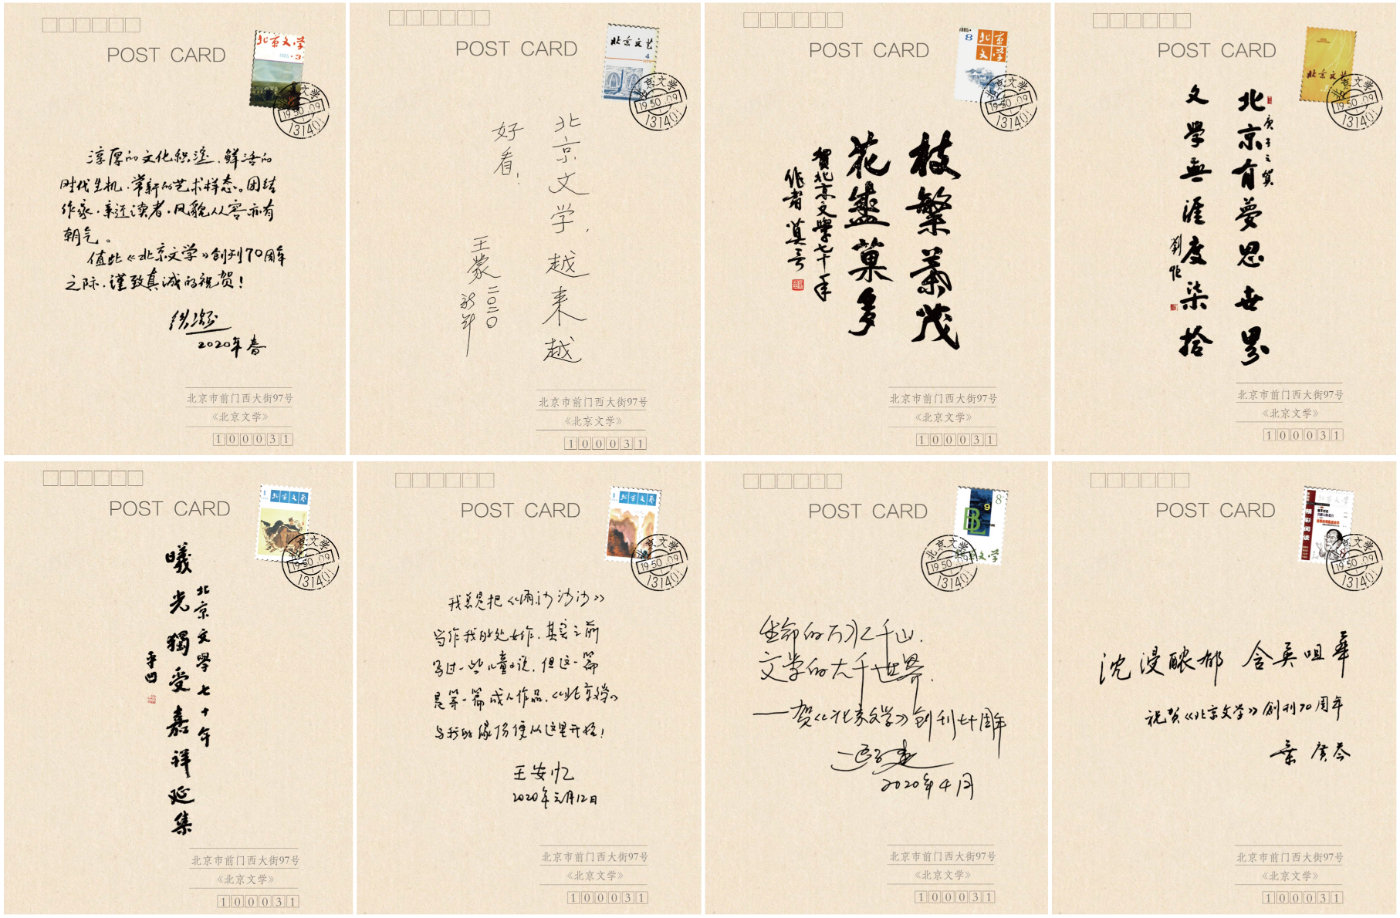 POST CARD
北京文学
3
北京文学
19.50.09
淳厚的文化积淀，鲜活的
时代生机，常新的艺术样态。团结
作家，亲近读者，风貌从容亦有
朝气。
值此《北京文学》创刊70周年
之际，谨致真诚的祝贺！
2020年春
北京市前门西大街97号
《北京文学》
100031
POST CARD
北京文艺
4
北京文学
19.50.09
1314
北京文学，越来越
好看！
王蒙
二〇二〇
北京市前门西大街97号
《北京文学》
100031
POST CARD
8
北京
文学
北京文学
19.50.09
1314
枝繁葉茂
花盛菓多
賀北京文學七十年
作者 莫言
北京市前门西大街97号
《北京文学》
100031
POST CARD
北京文艺
北京文学
19.50.09
1314
北京有夢思世界
文學無涯度柒拾
庚子之賀
劉恒
北京市前门西大街97号
《北京文学》
100031
POST CARD
1 北京文艺
北京文学
19.50.09
1314
曦光獨受嘉祥延集
北京文學七十年
北京市前门西大街97号
《北京文学》
100031
POST CARD
1 北京文艺
北京文学
19.50.09
1314
我总是把《雨，沙沙沙》
写作我的处女作，其实之前
写过一些儿童小说，但这一篇
是第一篇成人作品，《北京文学》
与我的缘份便从这里开始！
王安忆
2020年三月12日
北京市前门西大街97号
《北京文学》
100031
POST CARD
8
9
文学
北京文学
19.50.09
1314
生命的万水千山，
文学的大千世界。
——贺《北京文学》创刊七十周年
2020年4月
北京市前门西大街97号
《北京文学》
100031
POST CARD
北京文学
精彩阅读
北京文学
19.50.09
1314
沈浸醲郁 含英咀華
祝贺《北京文学》创刊70周年
叶广芩
北京市前门西大街97号
《北京文学》
100031